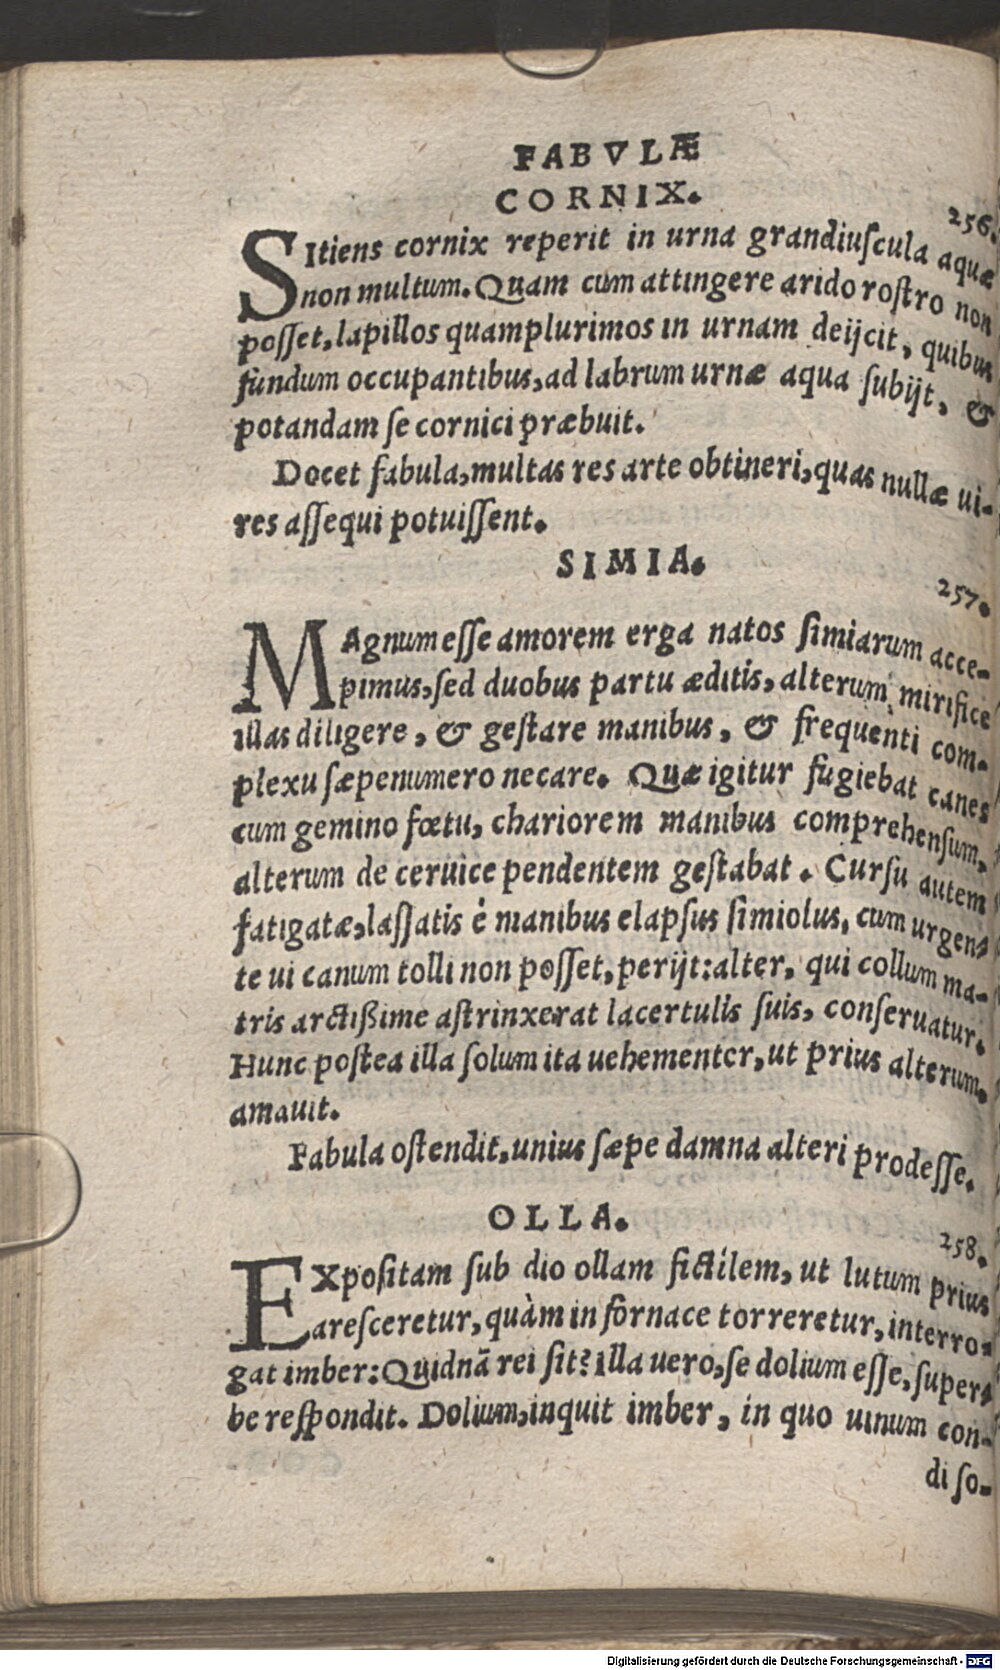 FABVLÆ
CORNIX.
256.
SItiens cornix reperit in urna grandiuſcula aquæ
non multum. Quam cum attingere arido roſtro non
poſſet, lapillos quamplurimos in urnam deijcit, quibus
fundum occupantibus, ad labrum urnæ aqua ſubijt, &
potandam ſe cornici præbuit.
Docet fabula, multas res arte obtineri, quas nullæ ui-
res aſſequi potuiſſent.
SIMIA.
257.
MAgnum eſſe amorem erga natos ſimiarum acce-
pimus, ſed duobus partu æditis, alterum mirifice
illas diligere, & geſtare manibus, & frequenti com-
plexu ſæpenumero necare. Quæ igitur fugiebat canes
cum gemino fœtu, chariorem manibus comprehenſum,
alterum de ceruice pendentem geſtabat. Curſu autem
fatigatæ, laſſatis è manibus elapſus ſimiolus, cum urgen-
te ui canum tolli non poſſet, perijt: alter, qui collum ma-
tris arctißime aſtrinxerat lacertulis ſuis, conſeruatur.
Hunc poſtea illa ſolum ita uehementer, ut prius alterum.
amauit.
Fabula oſtendit, unius ſæpe damna alteri prodeſſe.
OLLA.
258.
EXpoſitam ſub dio ollam fictilem, ut lutum prius
areſceretur, quàm in fornace torreretur, interro-
gat imber: Quidnā rei ſit? illa uero, ſe dolium eſſe, ſuper-
be reſpondit. Dolium, inquit imber, in quo uinum con-
di ſo-
Digitalisierung gefördert durch die Deutsche Forschungsgemeinschaft - DFG